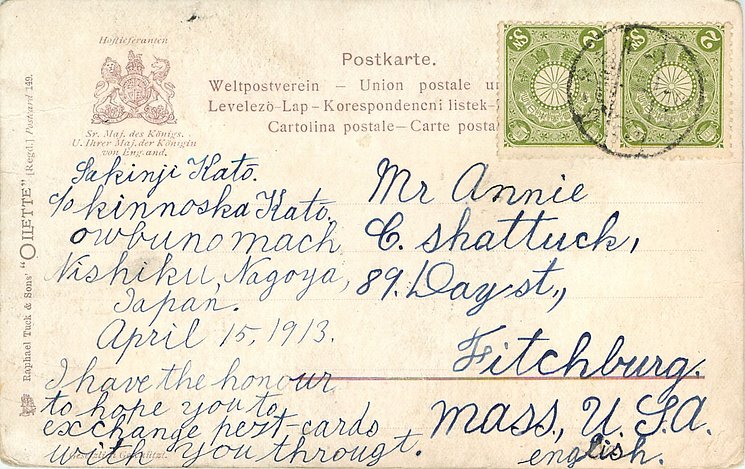 Hoflieferanten
Sr. Maj. des Königs.
U. Ihrer Maj. der Königin
von England.
Postkarte.
Weltpostverein – Union postale u
Levelezö-Lap – Korespondencni listek-
Cartolina postale – Carte posta
2 SN
2 SN
Raphael Tuck & Sons' "OILETTE" [Regd.] Postcard 149.
Sakinji Kato.
c/o kinnoska Kato.
owbunomach
Nishiku, Nagoya,
Japan.
April 15, 1913.
I have the honour
to hope you to
exchange pest-cards
with you througt.
english.
Mr Annie
C. Shattuck,
89. Day st.,
Fitchburg.
Mass., U.S.A.